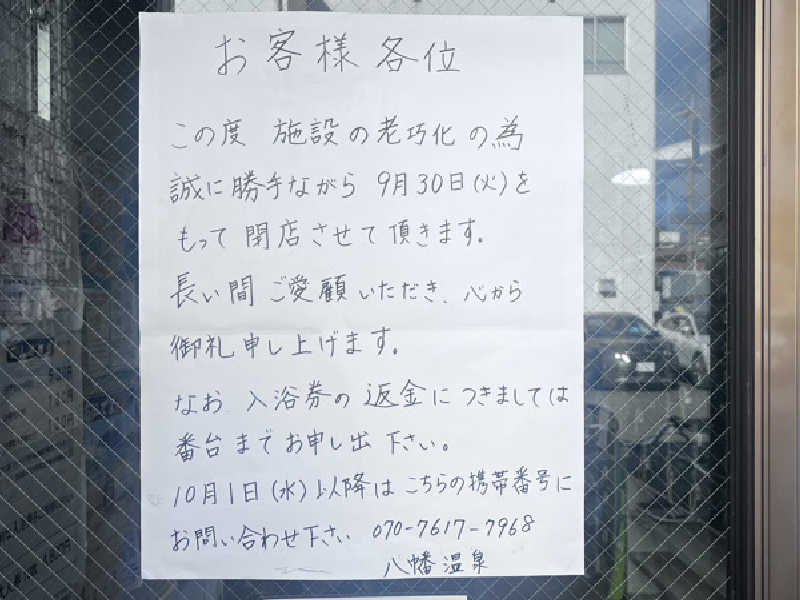 お客様各位
この度 施設の老巧化の為
誠に勝手ながら 9月30日(火)を
もって閉店させて頂きます。
長い間 ご愛顧いただき、心から
御礼申し上げます。
なお 入浴券の返金につきましては
番台までお申し出下さい。
10月1日(水)以降はこちらの携帯番号に
お問い合わせ下さい 070-7617-7968
八幡温泉